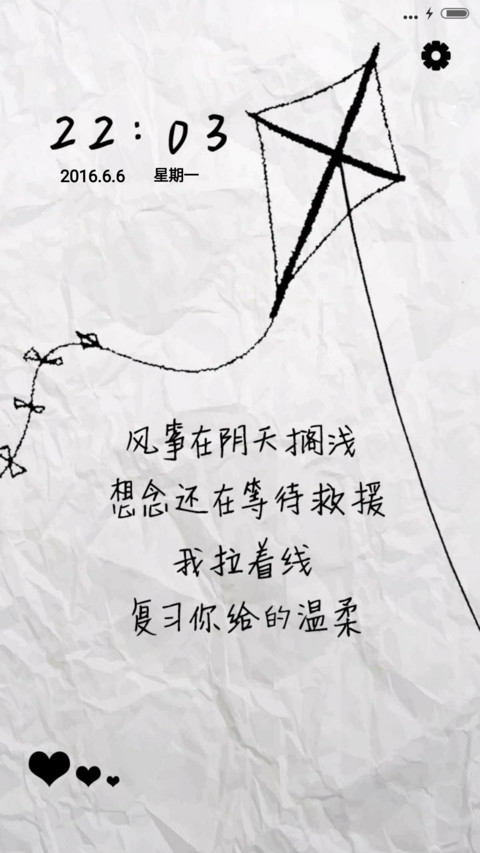 22:03
2016.6.6 星期一
风筝在阴天搁浅
想念还在等待救援
我拉着线
复习你给的温柔